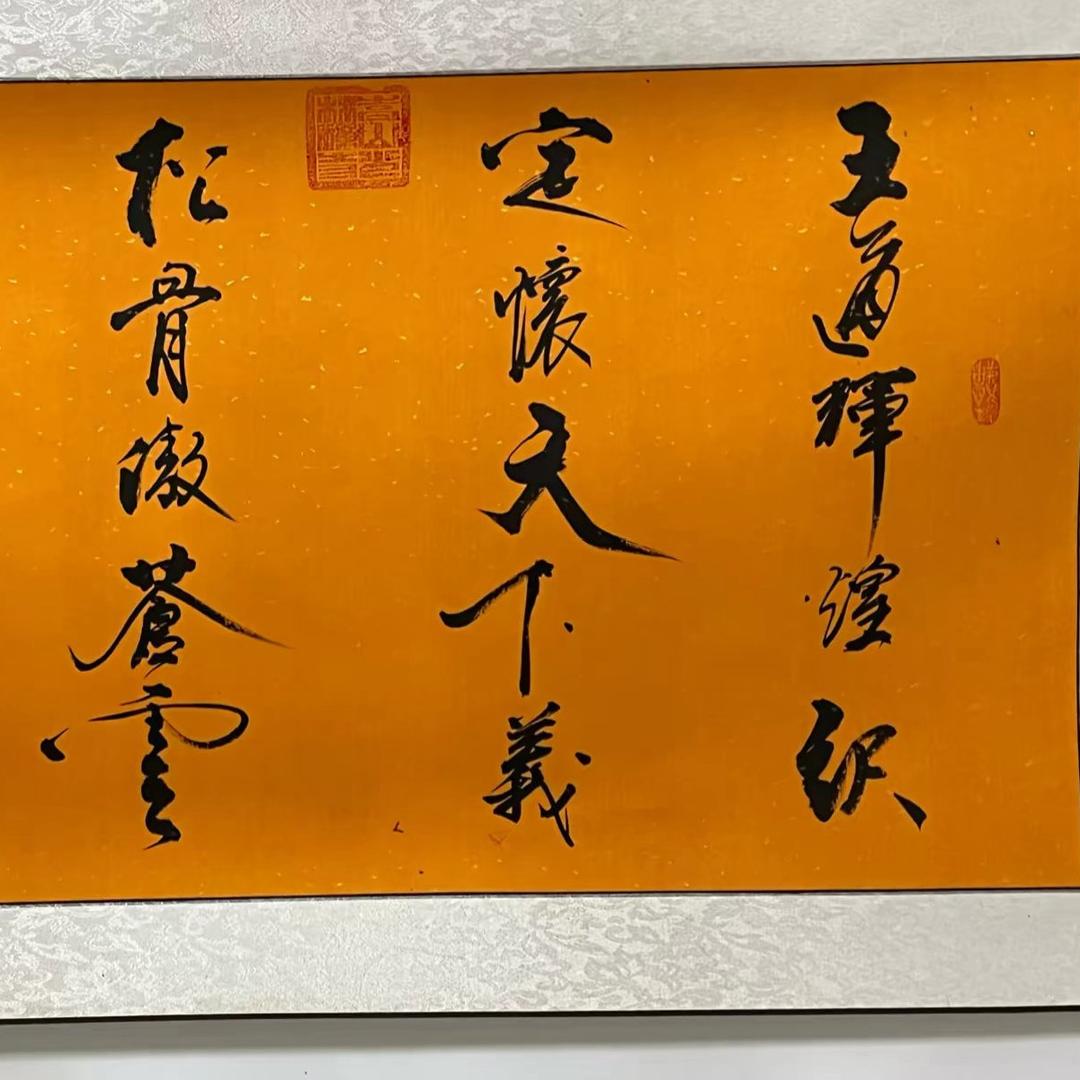 王道輝煌
定懷天下義
松骨傲蒼雲